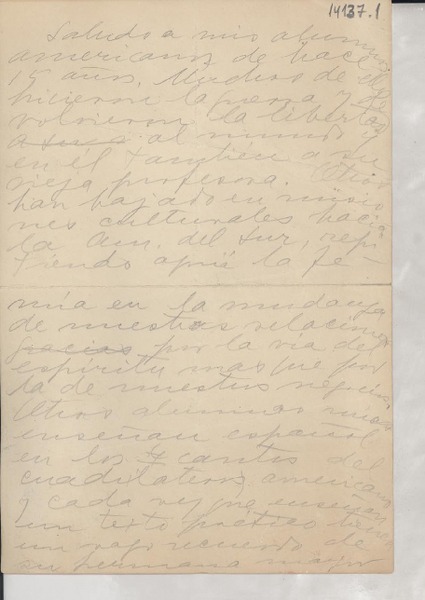 14137.1
Saludo a mis alumnos
americanos de hace
15 años. Muchos de ellos
hicieron la guerra y le
volvieron la libertad
al mundo y
en él también a su
vieja profesora. Otros
han bajado en misio
nes culturales hacia
la Am. del Sur, repi
tiendo aquí la fe
mía en la mudanza
de nuestras relaciones
gracias por la vía del
espíritu mas que por
la de nuestros negocios.
Otros alumnos míos
enseñan español
en los 4 cantos del
cuadilatero americano
y cada vez que enseñan
un texto poético tienen
un vago recuerdo de
su hermana mayor